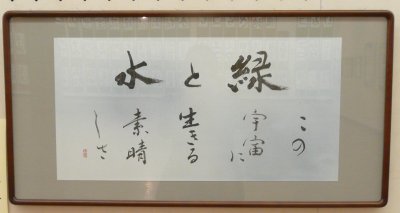 緑と水
この
宇宙に
生きる
素晴
しさ